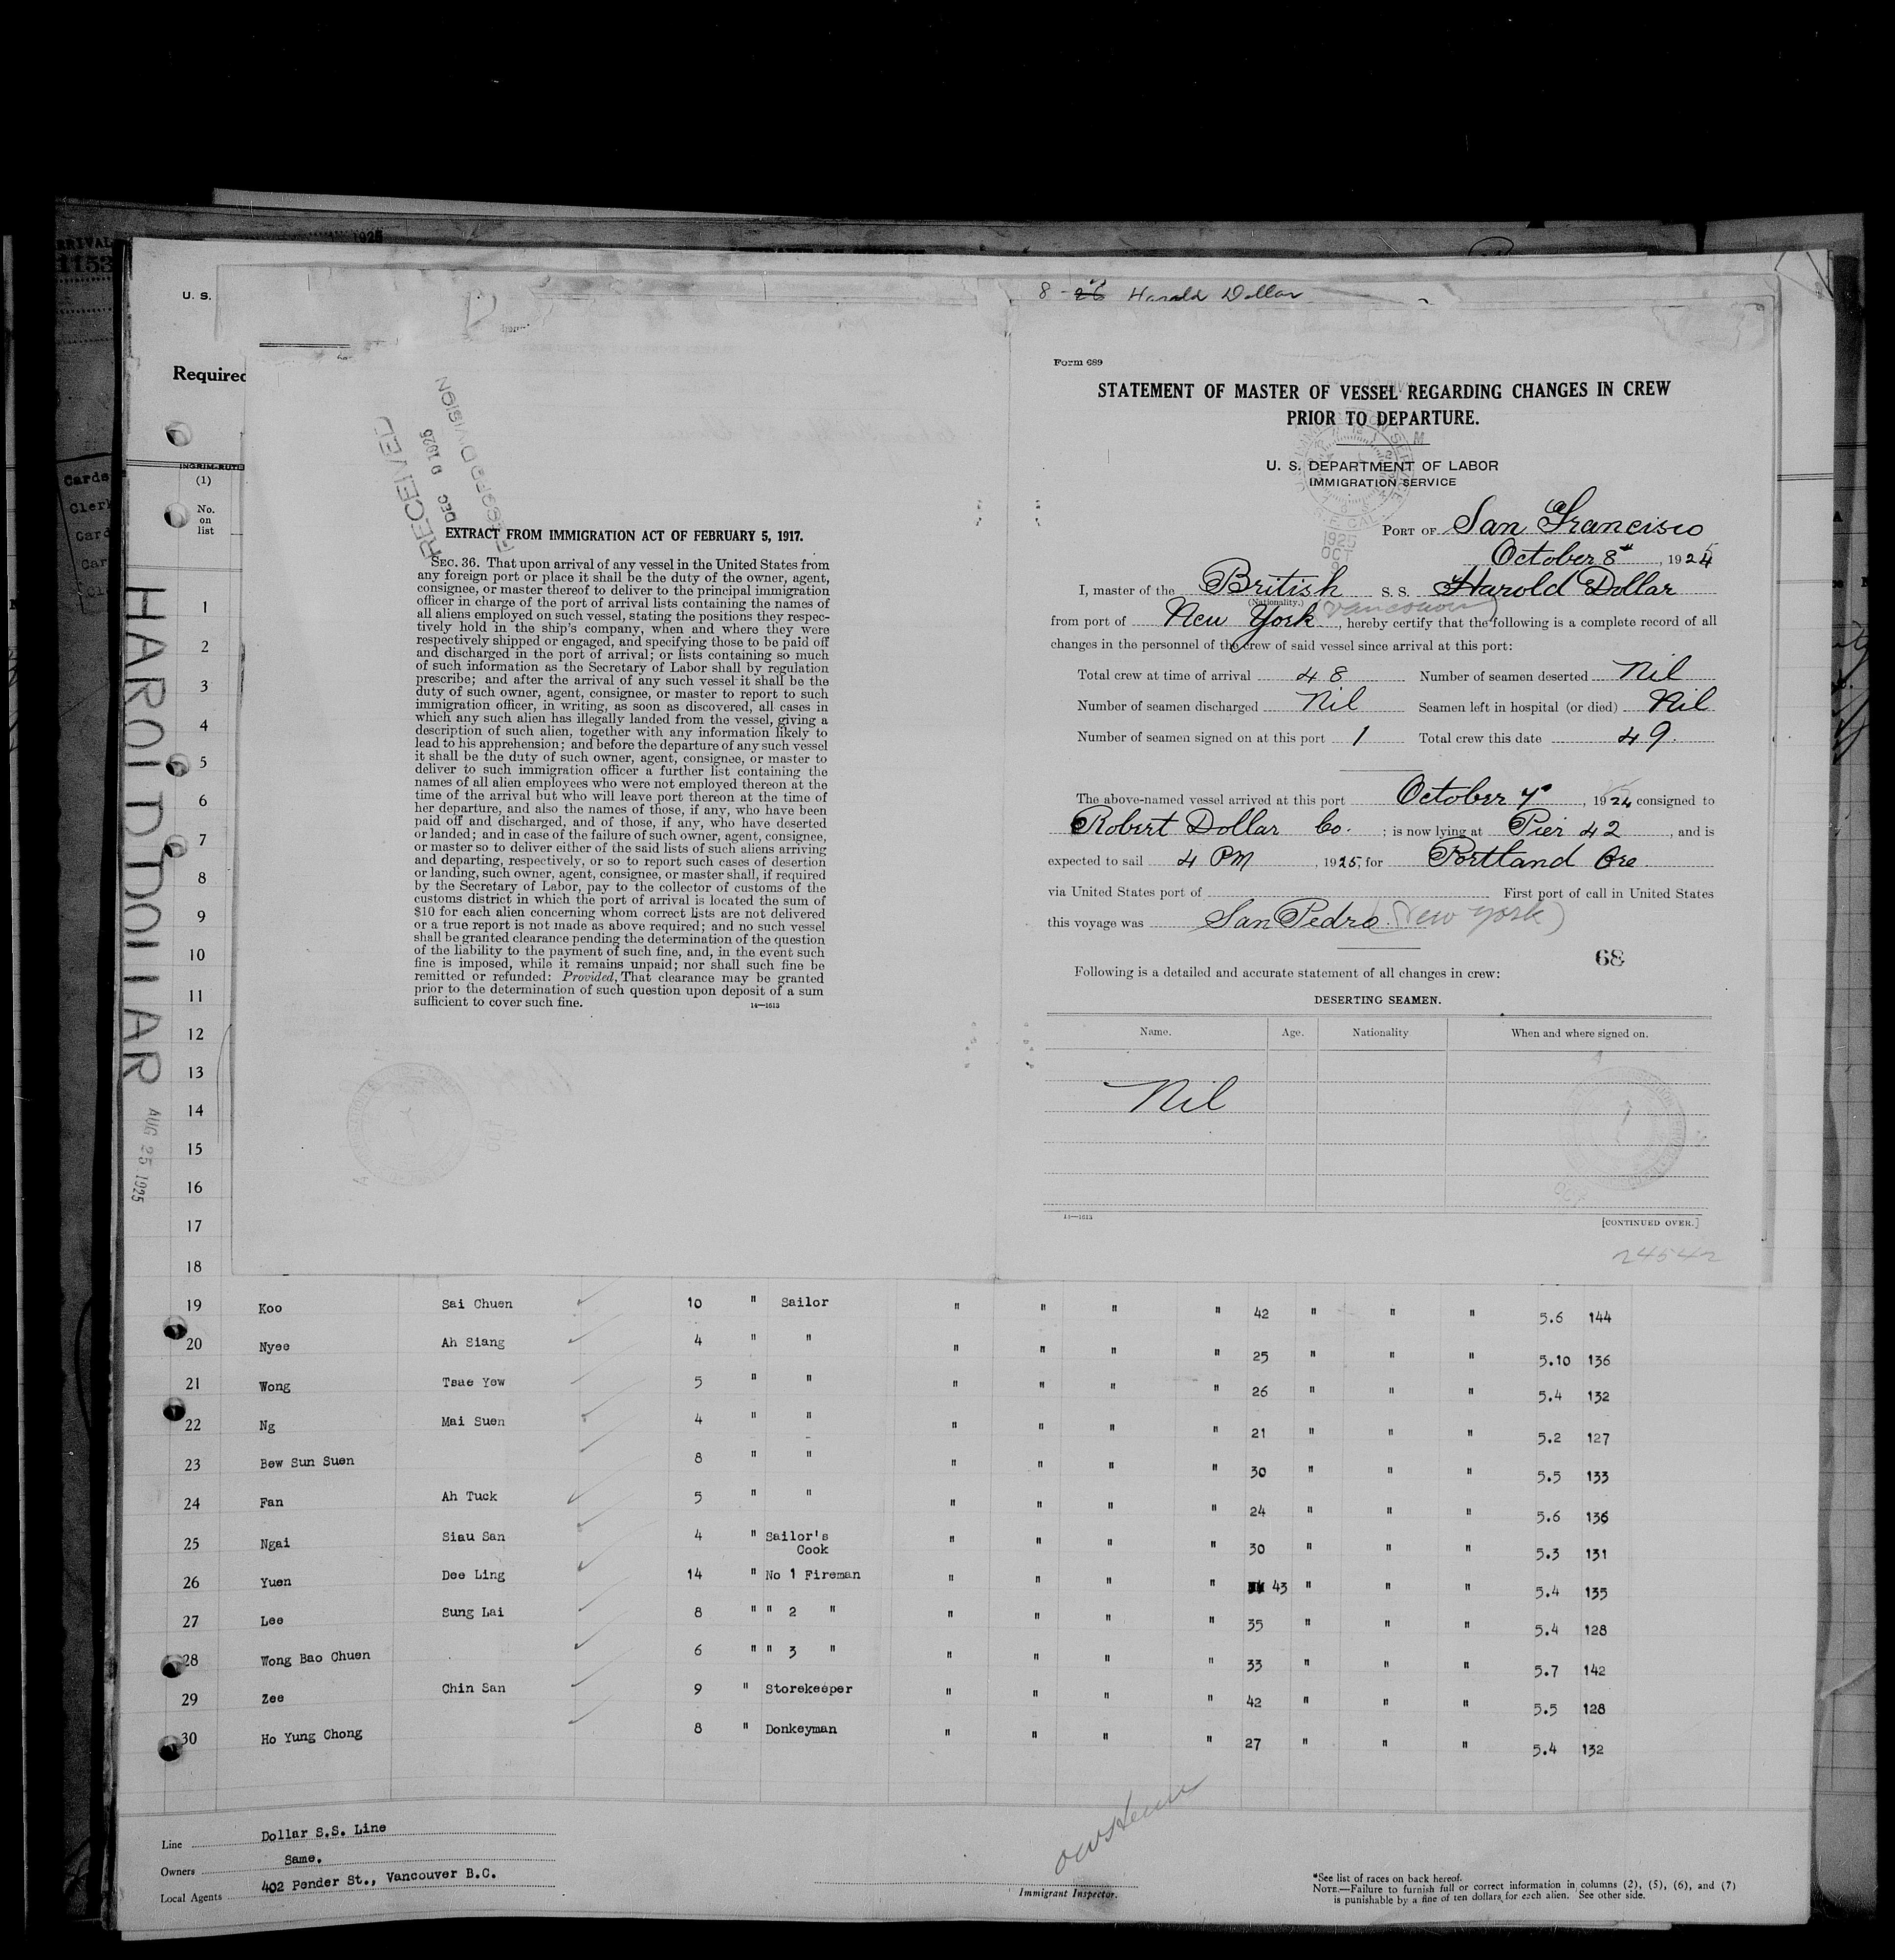 RRIVAL
1153
1925
U. S.
Required
(1)
No.
on
list
HAROLD DOLLAR
AUG 25 1925
1
2
3
4
5
6
7
8
9
10
11
12
13
14
15
16
17
18
RECEIVED
DEC 9 1925
RECORD DIVISION
EXTRACT FROM IMMIGRATION ACT OF FEBRUARY 5, 1917.
SEC. 36. That upon arrival of any vessel in the United States from
any foreign port or place it shall be the duty of the owner, agent,
consignee, or master thereof to deliver to the principal immigration
officer in charge of the port of arrival lists containing the names of
all aliens employed on such vessel, stating the positions they respec-
tively hold in the ship's company, when and where they were
respectively shipped or engaged, and specifying those to be paid off
and discharged in the port of arrival; or lists containing so much
of such information as the Secretary of Labor shall by regulation
prescribe; and after the arrival of any such vessel it shall be the
duty of such owner, agent, consignee, or master to report to such
immigration officer, in writing, as soon as discovered, all cases in
which any such alien has illegally landed from the vessel, giving a
description of such alien, together with any information likely to
lead to his apprehension; and before the departure of any such vessel
it shall be the duty of such owner, agent, consignee, or master to
deliver to such immigration officer a further list containing the
names of all alien employees who were not employed thereon at the
time of the arrival but who will leave port thereon at the time of
her departure, and also the names of those, if any, who have been
paid off and discharged, and of those, if any, who have deserted
or landed; and in case of the failure of such owner, agent, consignee,
or master so to deliver either of the said lists of such aliens arriving
and departing, respectively, or so to report such cases of desertion
or landing, such owner, agent, consignee, or master shall, if required
by the Secretary of Labor, pay to the collector of customs of the
customs district in which the port of arrival is located the sum of
$10 for each alien concerning whom correct lists are not delivered
or a true report is not made as above required; and no such vessel
shall be granted clearance pending the determination of the question
of the liability to the payment of such fine, and, in the event such
fine is imposed, while it remains unpaid; nor shall such fine be
remitted or refunded: Provided, That clearance may be granted
prior to the determination of such question upon deposit of a sum
sufficient to cover such fine.
14—1613
8 - 26 Harold Dollar
Form 689
STATEMENT OF MASTER OF VESSEL REGARDING CHANGES IN CREW
PRIOR TO DEPARTURE.
U. S. DEPARTMENT OF LABOR
IMMIGRATION SERVICE
1925
OCT
8
PORT OF San Francisco
October 8th, 1925
I, master of the British S. S. Harold Dollar
(Nationality.) (Vancouver)
from port of New York, hereby certify that the following is a complete record of all
changes in the personnel of the crew of said vessel since arrival at this port:
Total crew at time of arrival 48 Number of seamen deserted Nil
Number of seamen discharged Nil Seamen left in hospital (or died) Nil
Number of seamen signed on at this port 1 Total crew this date 49.
The above-named vessel arrived at this port October 7th, 1924 consigned to
Robert Dollar Co. ; is now lying at Pier 42, and is
expected to sail 4 PM, 1925, for Portland Ore
via United States port of First port of call in United States
this voyage was San Pedro (New York)
68
Following is a detailed and accurate statement of all changes in crew:
DESERTING SEAMEN.
Name. Age. Nationality When and where signed on.
Nil
14—1613 [CONTINUED OVER.]
24542
19 Koo Sai Chuen 10 " Sailor " " " " 42 " " " 5.6 144
20 Nyee Ah Siang 4 " " " " " " 25 " " " 5.10 136
21 Wong Tsae Yew 5 " " " " " " 26 " " " 5.4 132
22 Ng Mai Suen 4 " " " " " " 21 " " " 5.2 127
23 Bew Sun Suen 8 " " " " " " 30 " " " 5.5 133
24 Fan Ah Tuck 5 " " " " " " 24 " " " 5.6 136
25 Ngai Siau San 4 " Sailor's Cook " " " " 30 " " " 5.3 131
26 Yuen Dee Ling 14 " No 1 Fireman " " " " 43 " " " 5.4 135
27 Lee Sung Lai 8 " " 2 " " " " " 35 " " " 5.4 128
28 Wong Bao Chuen 6 " " 3 " " " " " 33 " " " 5.7 142
29 Zee Chin San 9 " Storekeeper " " " " 42 " " " 5.5 128
30 Ho Yung Chong 8 " Donkeyman " " " " 27 " " " 5.4 132
Line Dollar S.S. Line
Owners Same.
Local Agents 402 Pender St., Vancouver B.C.
Immigrant Inspector.
*See list of races on back hereof.
NOTE.—Failure to furnish full or correct information in columns (2), (5), (6), and (7)
is punishable by a fine of ten dollars for each alien. See other side.